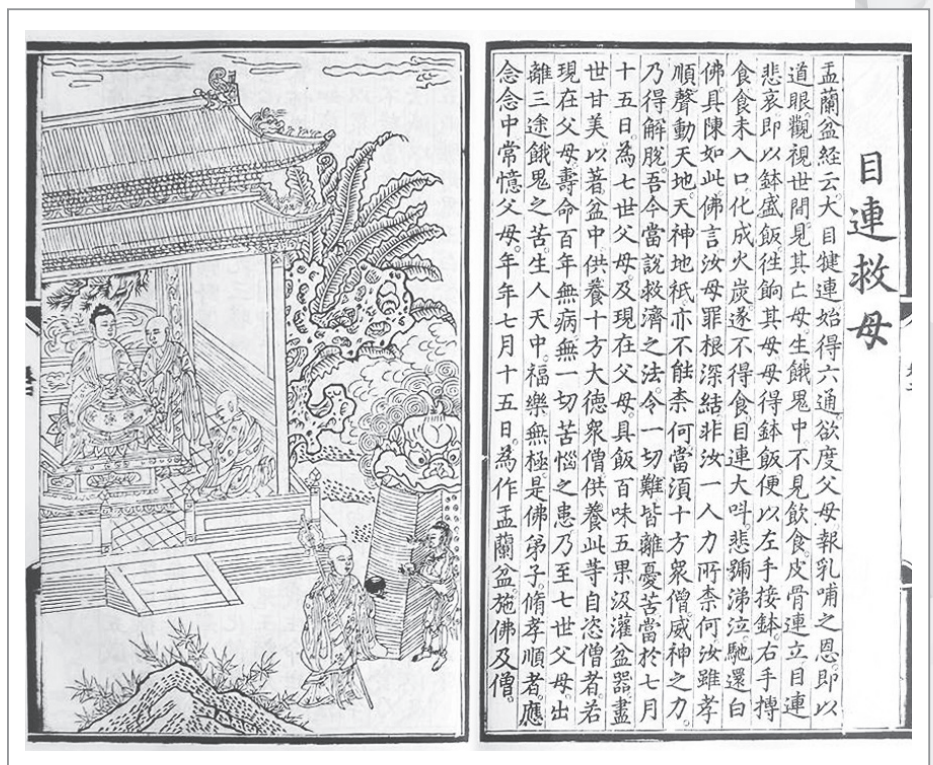 目連救母
盂蘭盆経云。大目犍連始得六通。欲度父母報乳哺之恩。即以
道眼觀視世間。見其亡母。生餓鬼中。不見飲食。皮骨連立。目連
悲哀。即以鉢盛飯徃餉其母。母得鉢飯便以左手接鉢。右手摶
食。食未入口。化成火炭。遂不得食。目連大呌。悲號涕泣。馳還白
佛。具陳如此。佛言汝母罪根深結。非汝一人力所柰何。汝雖孝
順聲動天地。天神地祇亦不能柰何。當湏十方衆僧威神之力。
乃得解脫。吾今當說救濟之法。令一切難皆離憂苦。當於七月
十五日。為七世父母。及現在父母。具飯百味五果。汲灌盆器。盡
世甘美。以著盆中。供養十方大德衆僧。供養此等自恣僧者。若
現在父母。壽命百年無病。無一切苦惱之患。乃至七世父母。出
離三途餓鬼之苦。生人天中。福樂無極。是佛弟子脩孝順者。應
念念中常憶父母。年年七月十五日。為作盂蘭盆施佛及僧。